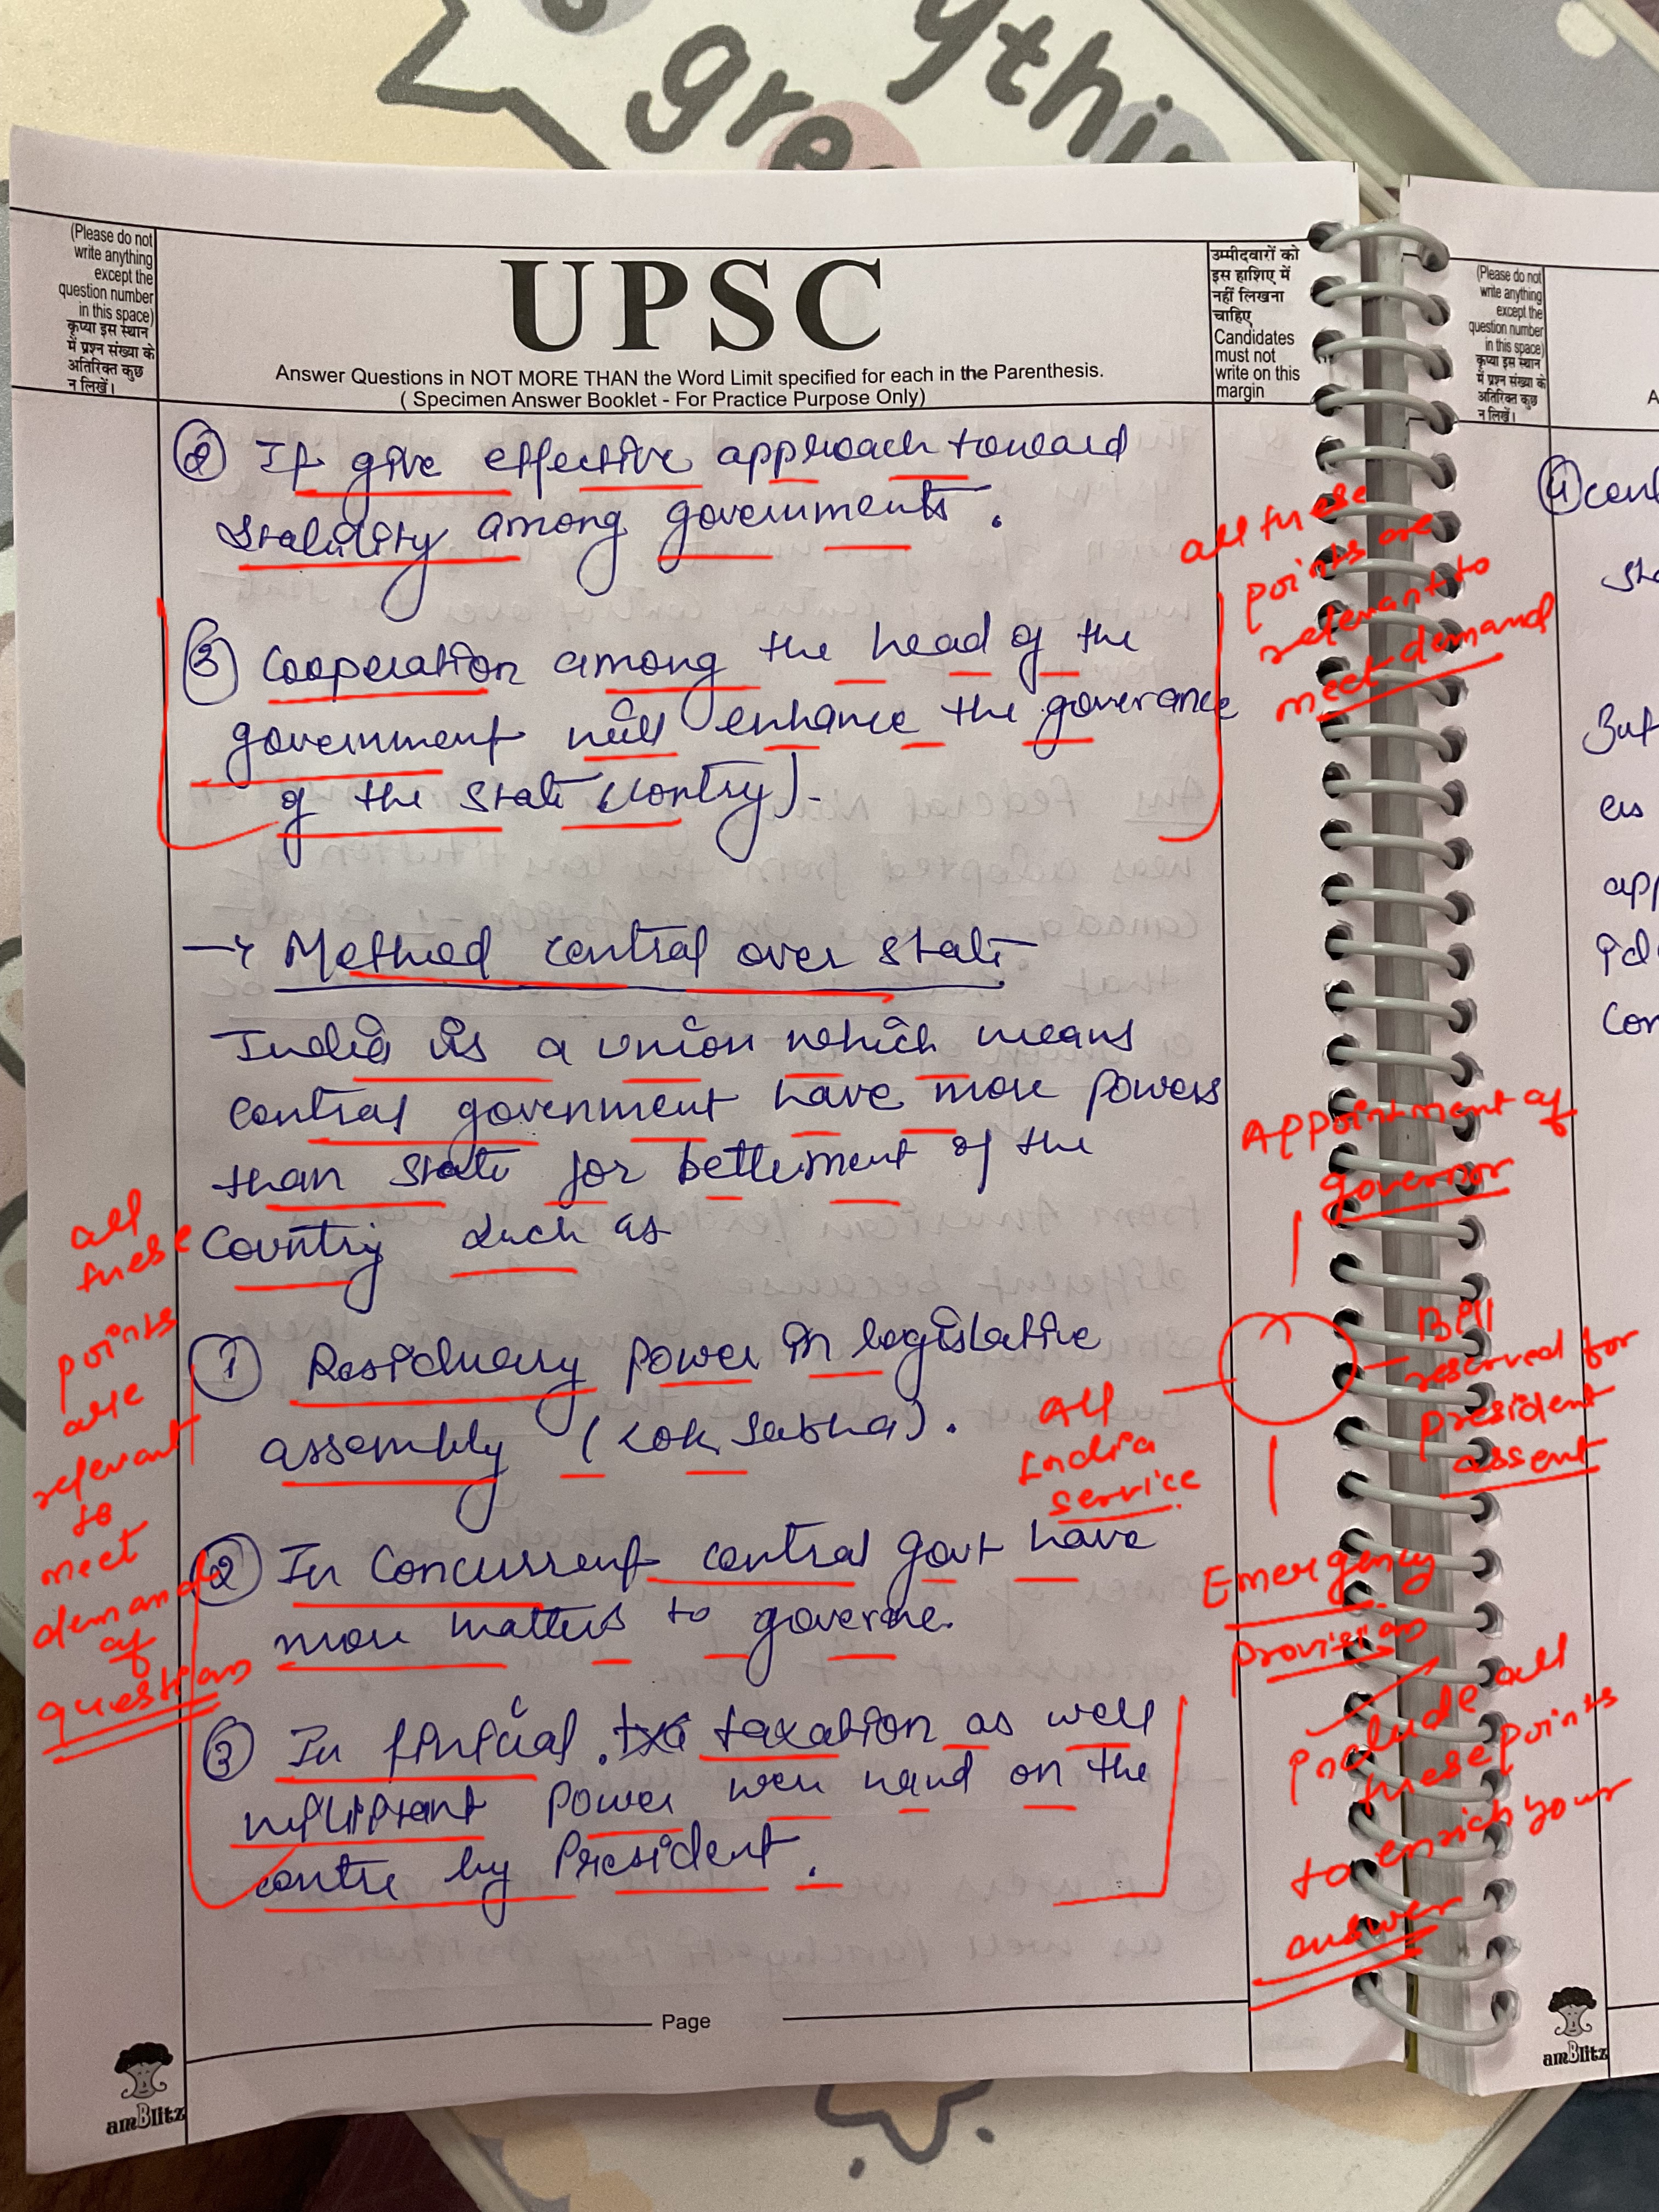 everything
gre
(Please do not
write anything
except the
question number
in this space)
कृप्या इस स्थान
में प्रश्न संख्या के
अतिरिक्त कुछ
न लिखें।
UPSC
Answer Questions in NOT MORE THAN the Word Limit specified for each in the Parenthesis.
( Specimen Answer Booklet - For Practice Purpose Only)
उम्मीदवारों को
इस हाशिए में
नहीं लिखना
चाहिए
Candidates
must not
write on this
margin
② It give effective approach toward
stability among governments.
③ Cooperation among the head of the
government will enhance the goverance
of the state (contry).
all these
points are
relevant to
meet demand
→ Method central over state
India is a union which means
central government have more powers
than state for betterment of the
Country such as
① Residuary power in legislative
assembly (Lok Sabha).
② In Concurrent central govt have
more matters to governe.
③ In finicial taxation as well
power were hand on the
centre by President.
all
these
points
are
relevant
to
meet
demand
of
question
Appointment of
governor
Bill
reserved for
president
assent
All
India
service
Emergency
provision
include all
these points
to enrich your
answer
Page
amBlitz
(Please do not
write anything
except the
question number
in this space)
कृप्या इस स्थान
में प्रश्न संख्या के
अतिरिक्त कुछ
न लिखें।
A
④ cent
sta
But
es
app
ide
con
amBlitz